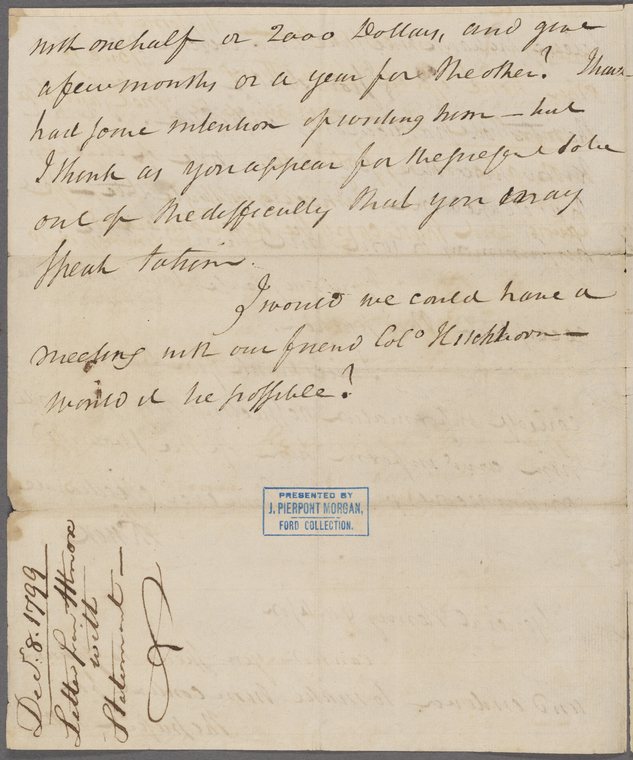 with one half or 2000 Dollars, and give
a few months or a year for the other? I have
had some intention of writing him — but
I think as you appear for the present to be
out of the difficulty that you may
speak to him.
I would we could have a
meeting with our friend Colo Hichborn —
would it be possible?
PRESENTED BY
J. PIERPONT MORGAN,
FORD COLLECTION.
Decr. 8. 1799
Letter from HKnox
with
Statement —